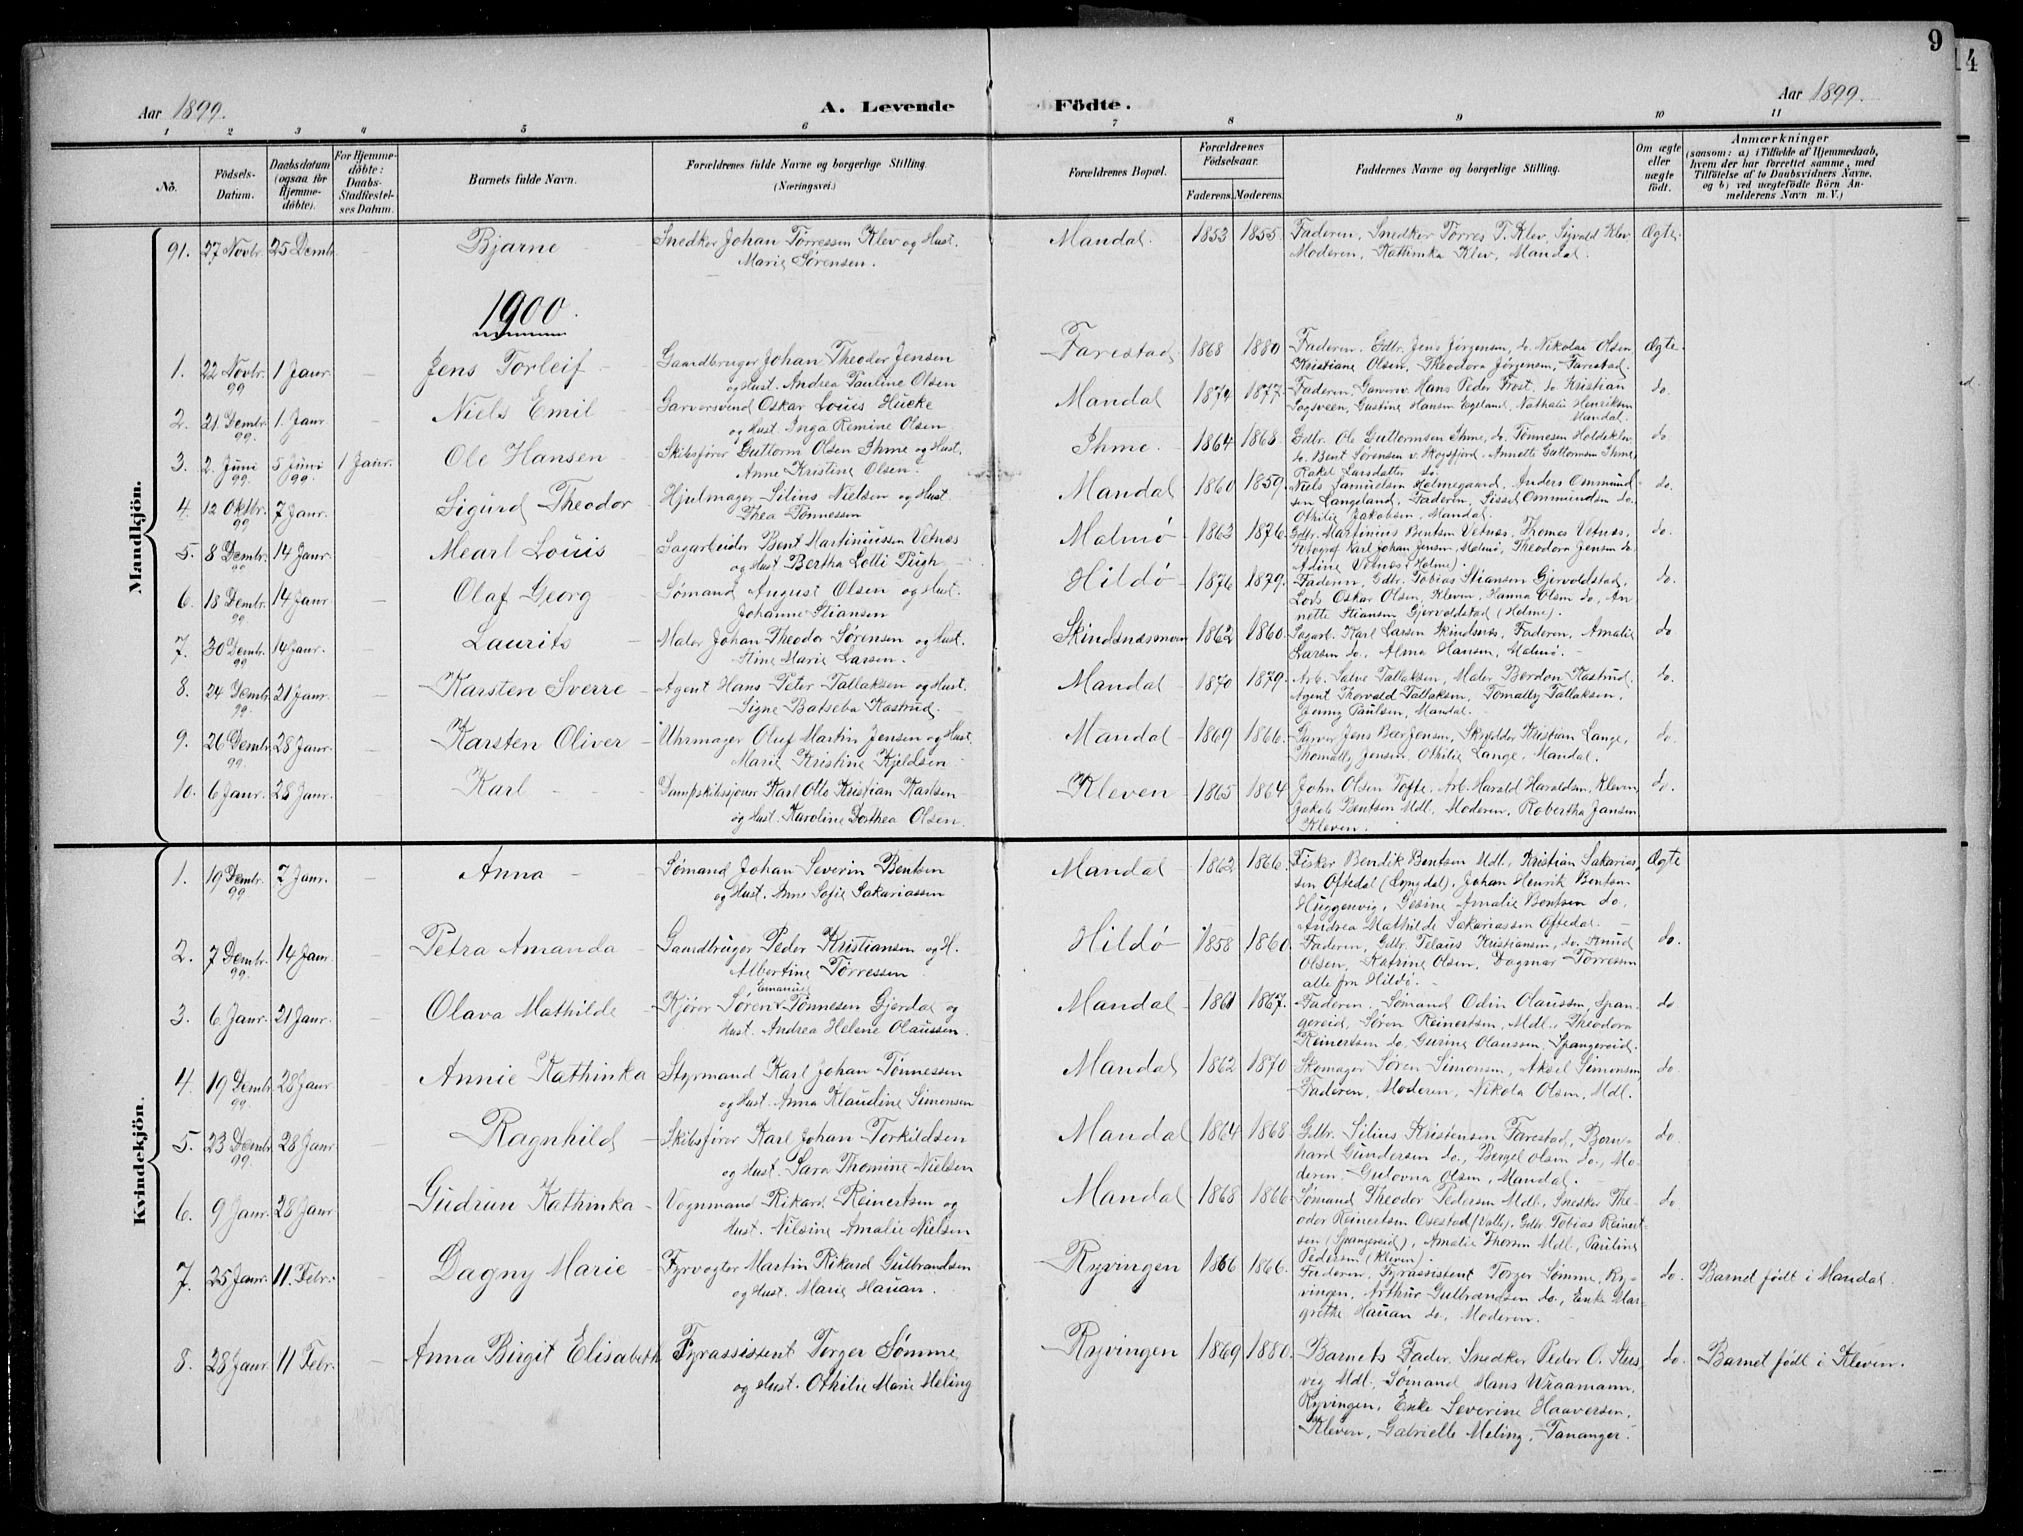 9
14
Aar 1899.
A. Levende Födte.
Aar 1899.
1 2 3 4 5 6 7 8 9 10 11
No.
Födsels-Datum.
Daabsdatum (ogsaa for Hjemmedöbte).
For Hjemmedöbte: Daabs-Stadfæstelses Datum.
Barnets fulde Navn.
Forældrenes fulde Navne og borgerlige Stilling.
(Næringsvei.)
Forældrenes Bopæl.
Forældrenes Födselsaar.
Faderens. Moderens.
Faddernes Navne og borgerlige Stilling.
Om ægte eller uægte födt.
Anmærkninger
(saasom: a) i Tilfælde af Hjemmedaab, hvem der har forrettet samme, med Tilföielse af to Daabsvidners Navne, og b) ved uægtefödte Börn Anmelderens Navn m. V.)
Mandkjön.
91. 27 Novbr. 25 Dembr. - Bjarne - Snedker Johan Tørressen Klev og Hust. Marie Sørensen. Mandal. 1853 1855. Faderen, Snedker Tørres T. Klev, Sigvald Klev, Moderen, Kathinka Klev, Mandal. Ægte.
1900.
1. 22 Novbr. 99 1 Janr. - Jens Torleif - Gaardbruger Johan Theodor Jensen og Hust. Andrea Pauline Olsen Farestad 1868 1880 Faderen. Gdbr. Jens Jørgensen, do. Nikolai Olsen Kristiane Olsen, Theodora Jørgensen, Farestad. Ægte.
2. 21 Dembr. 99. 1. Janr - Niels Emil - Garversvend Oskar Louis Hucke og Hust. Inga Remine Olsen. Mandal 1874 1877. Faderen. Garverv. Hans Peder Frost, do Kristian Sagsveen, Gustine Hansen Egeland, Nathalie Henriksen Mandal. do.
3. 2. Juni 99. 5 Juni 99. 1 Janr. Ole Hansen - Skibsfører Guttorm Olsen Ihme og Hust. Anne Kristine Olsen. Ihme. 1864 1868. Gdbr. Ole Guttormsen Ihme, do. Tønnesen Holdeklev do. Bent Sørensen v. Skogsfjord. Annette Guttormsen Ihme, Rakel Larsdatter do. do.
4. 12 Oktbr. 99 7 Janr. - Sigurd Theodor Hjulmager Silius Nielsen og Hust. Thea Tønnessen Mandal 1860 1859. Niels Samuelsen Holmegaard, Anders Ommundsen Langeland, Faderen, Sissel Ommundsen do. Othilie Jakobsen, Mandal. do.
5. 8 Dembr. 99 14 Janr - Mearl Louis Sagarbeider Bent Martiniussen Vetnes og Hust Bertha Lotti Pugh. - Malmø 1863 1876. Gdbr. Martinius Bentsen Vetnes, Thomas Vetnes, Fotograf Karl Johan Jensen, Malmø, Theodora Jensen do. Adine Vetnes (Holme). do.
6. 18 Dembr. 99 14 Janr - Olaf Georg Sømand August Olsen og Hust. Johanne Stiansen Hildø 1876 1879. Faderen, Gdbr. Tobias Stiansen Gjervoldstad, Lods Oskar Olsen, Kleven, Hanna Olsen do, Annette Stiansen Gjervoldstad (Holme). do.
7. 30 Dembr. 99 14 Janr. - Laurits - Maler Johan Theodor Sørensen og Hust. Stine Marie Larsen. Skindsnæsmoen 1862 1860. Sagarb. Karl Larsen Skindsnes, Faderen, Amalie Larsen do., Alma Hansen, Malmø. - do
8. 24 Dembr. 99. 21 Janr. - Karsten Sverre - Agent Hans Peter Tallaksen og Hust. Signe Batseba Kastrud. Mandal 1870 1879. Arb. Salve Tallaksen, Maler Berdon Kastrud. Agent Thorvald Tallaksen, Tomally Tallaksen, Jenny Paulsen, Mandal. do.
9. 26 Dembr. 99. 28 Janr. - Karsten Oliver - Uhrmager Oluf Martin Jensen og Hust. Marie Kristine Kjeldsen Mandal 1869 1866. Garver Jens Beer Jensen, Skrædder Kristian Lange, Thomally Jensen, Othilie Lange, Mandal. do.
10. 6 Janr. 28 Janr. - Karl - - Dampskibssjouer Karl Otto Kristian Karlsen og Hust. Karoline Dorthea Olsen. Kleven 1865 1864. John Olsen Tofte, Arb. Harald Haraldsen, Kleven, Jakob Bentsen Mdl., Moderen, Robertha Jansen Kleven. do.
Kvindekjön.
1. 19 Dembr. 99 7 Janr. - Anna - Sømand Johan Severin Bentsen og Hust. Anne Sofie Sakariassen Mandal 1862 1866. Fisker Bendik Bentsen Mdl, Kristian Sakariassen Oftedal (Lyngdal). Johan Henrik Bentsen Huggenvig, Gesine Amalie Bentsen do, Andrea Mathilde Sakariassen Oftedal. - Ægte
2. 7 Dembr. 99. 14 Janr - Petra Amanda - Gaardbruger Peder Kristiansen og H. Albertine Tørressen Hildø 1858 1860. Faderen, Gdbr. Telaus Kristiansen, do. Knud Olsen, Katrine Olsen, Dagmar Tørressen alle fra Hildø. - do.
3. 6 Janr. 21 Janr. - Olava Mathilde Kjører Søren Emanuel Tønnesen Gjerdal og Hust. Andrea Helene Olaussen. Mandal 1861 1867. Faderen. Sømand Odin Olaussen, Spangereid, Søren Reinertsen, Mdl., Theodora Reinertsen do, Gurine Olaussen, Spangereid. do
4. 19 Dembr. 99. 28 Janr - Annie Kathinka Styrmand Karl Johan Tønnessen og Hust. Anna Klaudine Simonsen Mandal 1862 1870 Skomager Søren Simonsen, Aksel Simonsen, Faderen, Moderen, Nikola Olsen, Mdl. do.
5. 23 Dembr. 99. 28 Janr - Ragnhild - Skibsfører Karl Johan Torkildsen og Hust. Sara Thomine Nielsen Mandal 1864 1868 Gdbr. Silius Kristensen Farestad, Bernhard Gundersen do., Bergel Olsen do., Moderen. Gulovna Olsen, Mandal. - do.
6. 9 Janr. 28 Janr - Gudrun Kathinka - Vognmand Rikard Reinertsen og Hust. Nilsine Amalie Nielsen Mandal 1868 1866. Sømand Theodor Pedersen Mdl., Snedker Theodor Reinertsen Osestad (Valle). Gdbr. Tobias Reinertsen (Spangereid), Amalie Thorsen Mdl., Pauline Pedersen (Kleven). - do
7. 25 Janr. 11. Febr. - Dagny Marie - Fyrvogter Martin Rikard Gulbrandsen og Hust. Marie Hauan. Ryvingen 1866 1866. Faderen, Fyrassistent Torger Sømme, Ryvingen, Arthur Gulbrandsen do., Enke Margrethe Hauan do, Moderen. do. Barnet født i Mandal.
8. 28 Janr. 11 Febr. - Anna Birgit Elisabeth Fyrassistent Torger Sømme og Hust. Othilie Marie Meling Ryvingen 1869 1880. Barnets Fader, Snedker Peder O. Stusvig Mdl., Sømand Hans Wraamann, Ryvingen, Enke Severine Haaversen, Kleven, Gabrielle Meling, Tananger. do. Barnet født i Kleven.